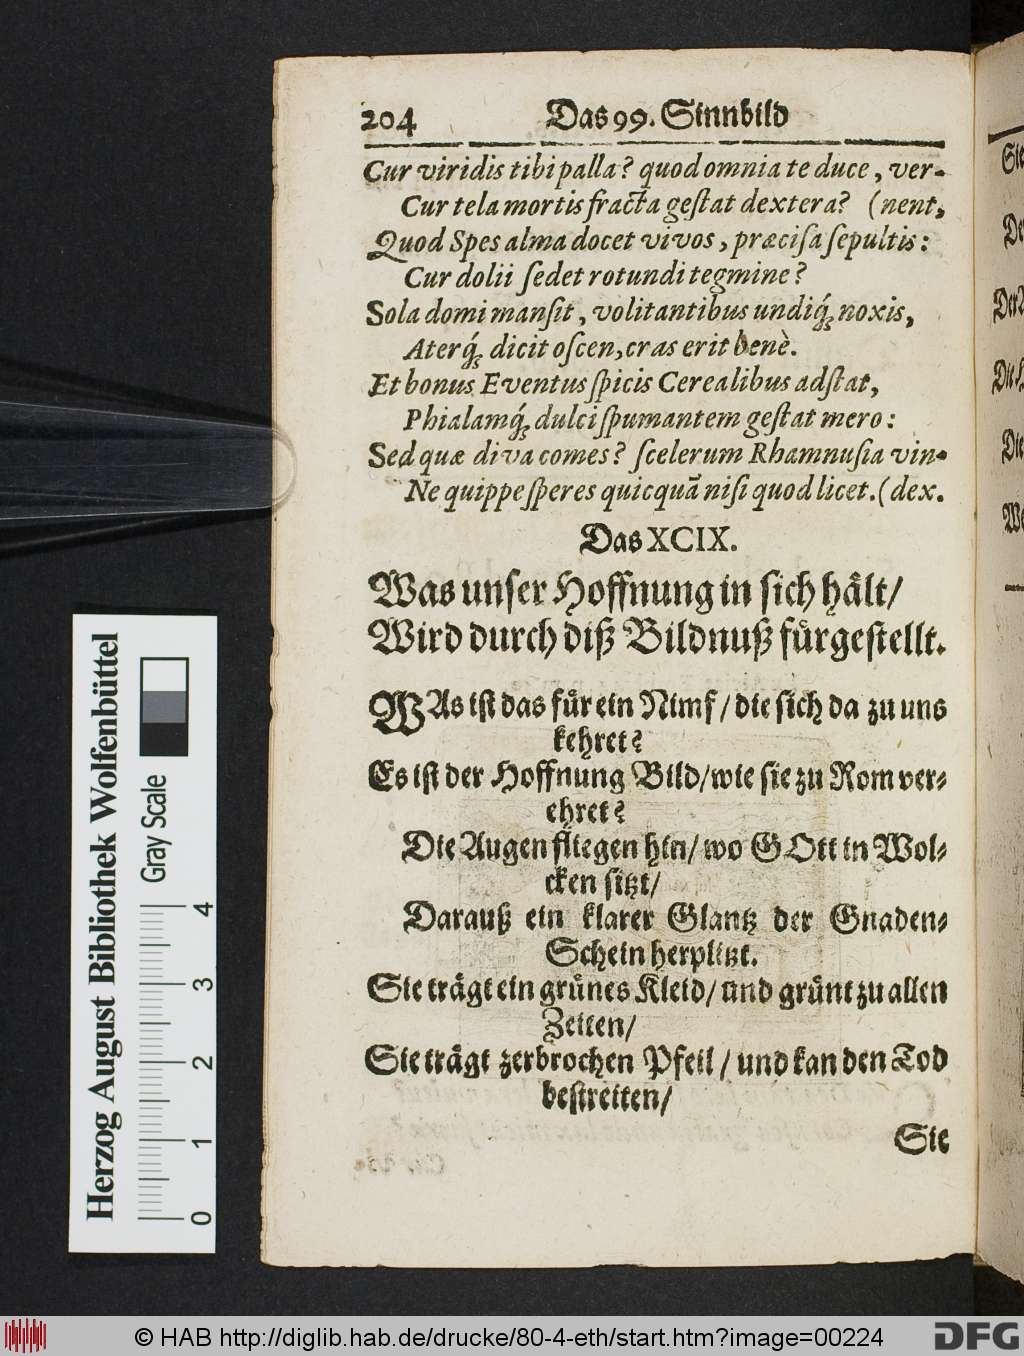 204 Das 99. Sinnbild
Cur viridis tibi palla? quod omnia te duce, ver-
Cur tela mortis fracta gestat dextera? (nent,
Quod Spes alma docet vivos, præcisa sepultis:
Cur dolii sedet rotundi tegmine?
Sola domi mansit, volitantibus undiq́; noxis,
Aterq́; dicit oscen, cras erit benè.
Et bonus Eventus spicis Cerealibus adstat,
Phialamq́; dulci spumantem gestat mero:
Sed quæ diva comes? scelerum Rhamnusia vin-
Ne quippe speres quicquã nisi quod licet. (dex.
Das XCIX.
Was unser Hoffnung in sich hält/
Wird durch diß Bildnuß fürgestellt.
WAs ist das für ein Nimf / die sich da zu uns
kehret?
Es ist der Hoffnung Bild/wie sie zu Rom ver-
ehret?
Die Augen fliegen hin/ wo GOtt in Wol-
cken sitzt/
Darauß ein klarer Glantz der Gnaden-
Schein herplitzt.
Sie trägt ein grünes Kleid/ und grünt zu allen
Zeiten/
Sie trägt zerbrochen Pfeil / und kan den Tod
bestreiten/
Sie
Herzog August Bibliothek Wolfenbüttel
Gray Scale
0 1 2 3 4
© HAB http://diglib.hab.de/drucke/80-4-eth/start.htm?image=00224
DFG